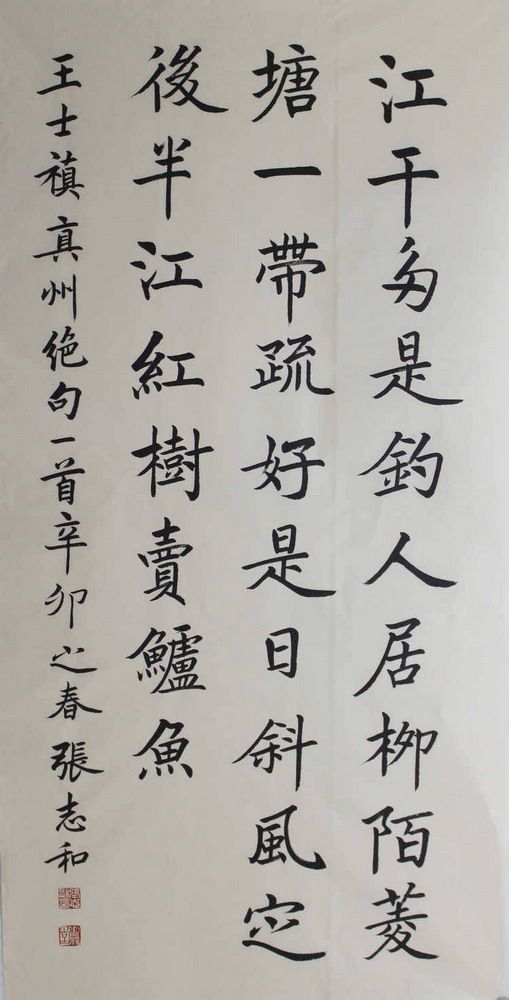 江干多是釣人居柳陌菱
塘一帶疏好是日斜風定
後半江紅樹賣鱸魚
王士禛真州绝句一首辛卯之春張志和